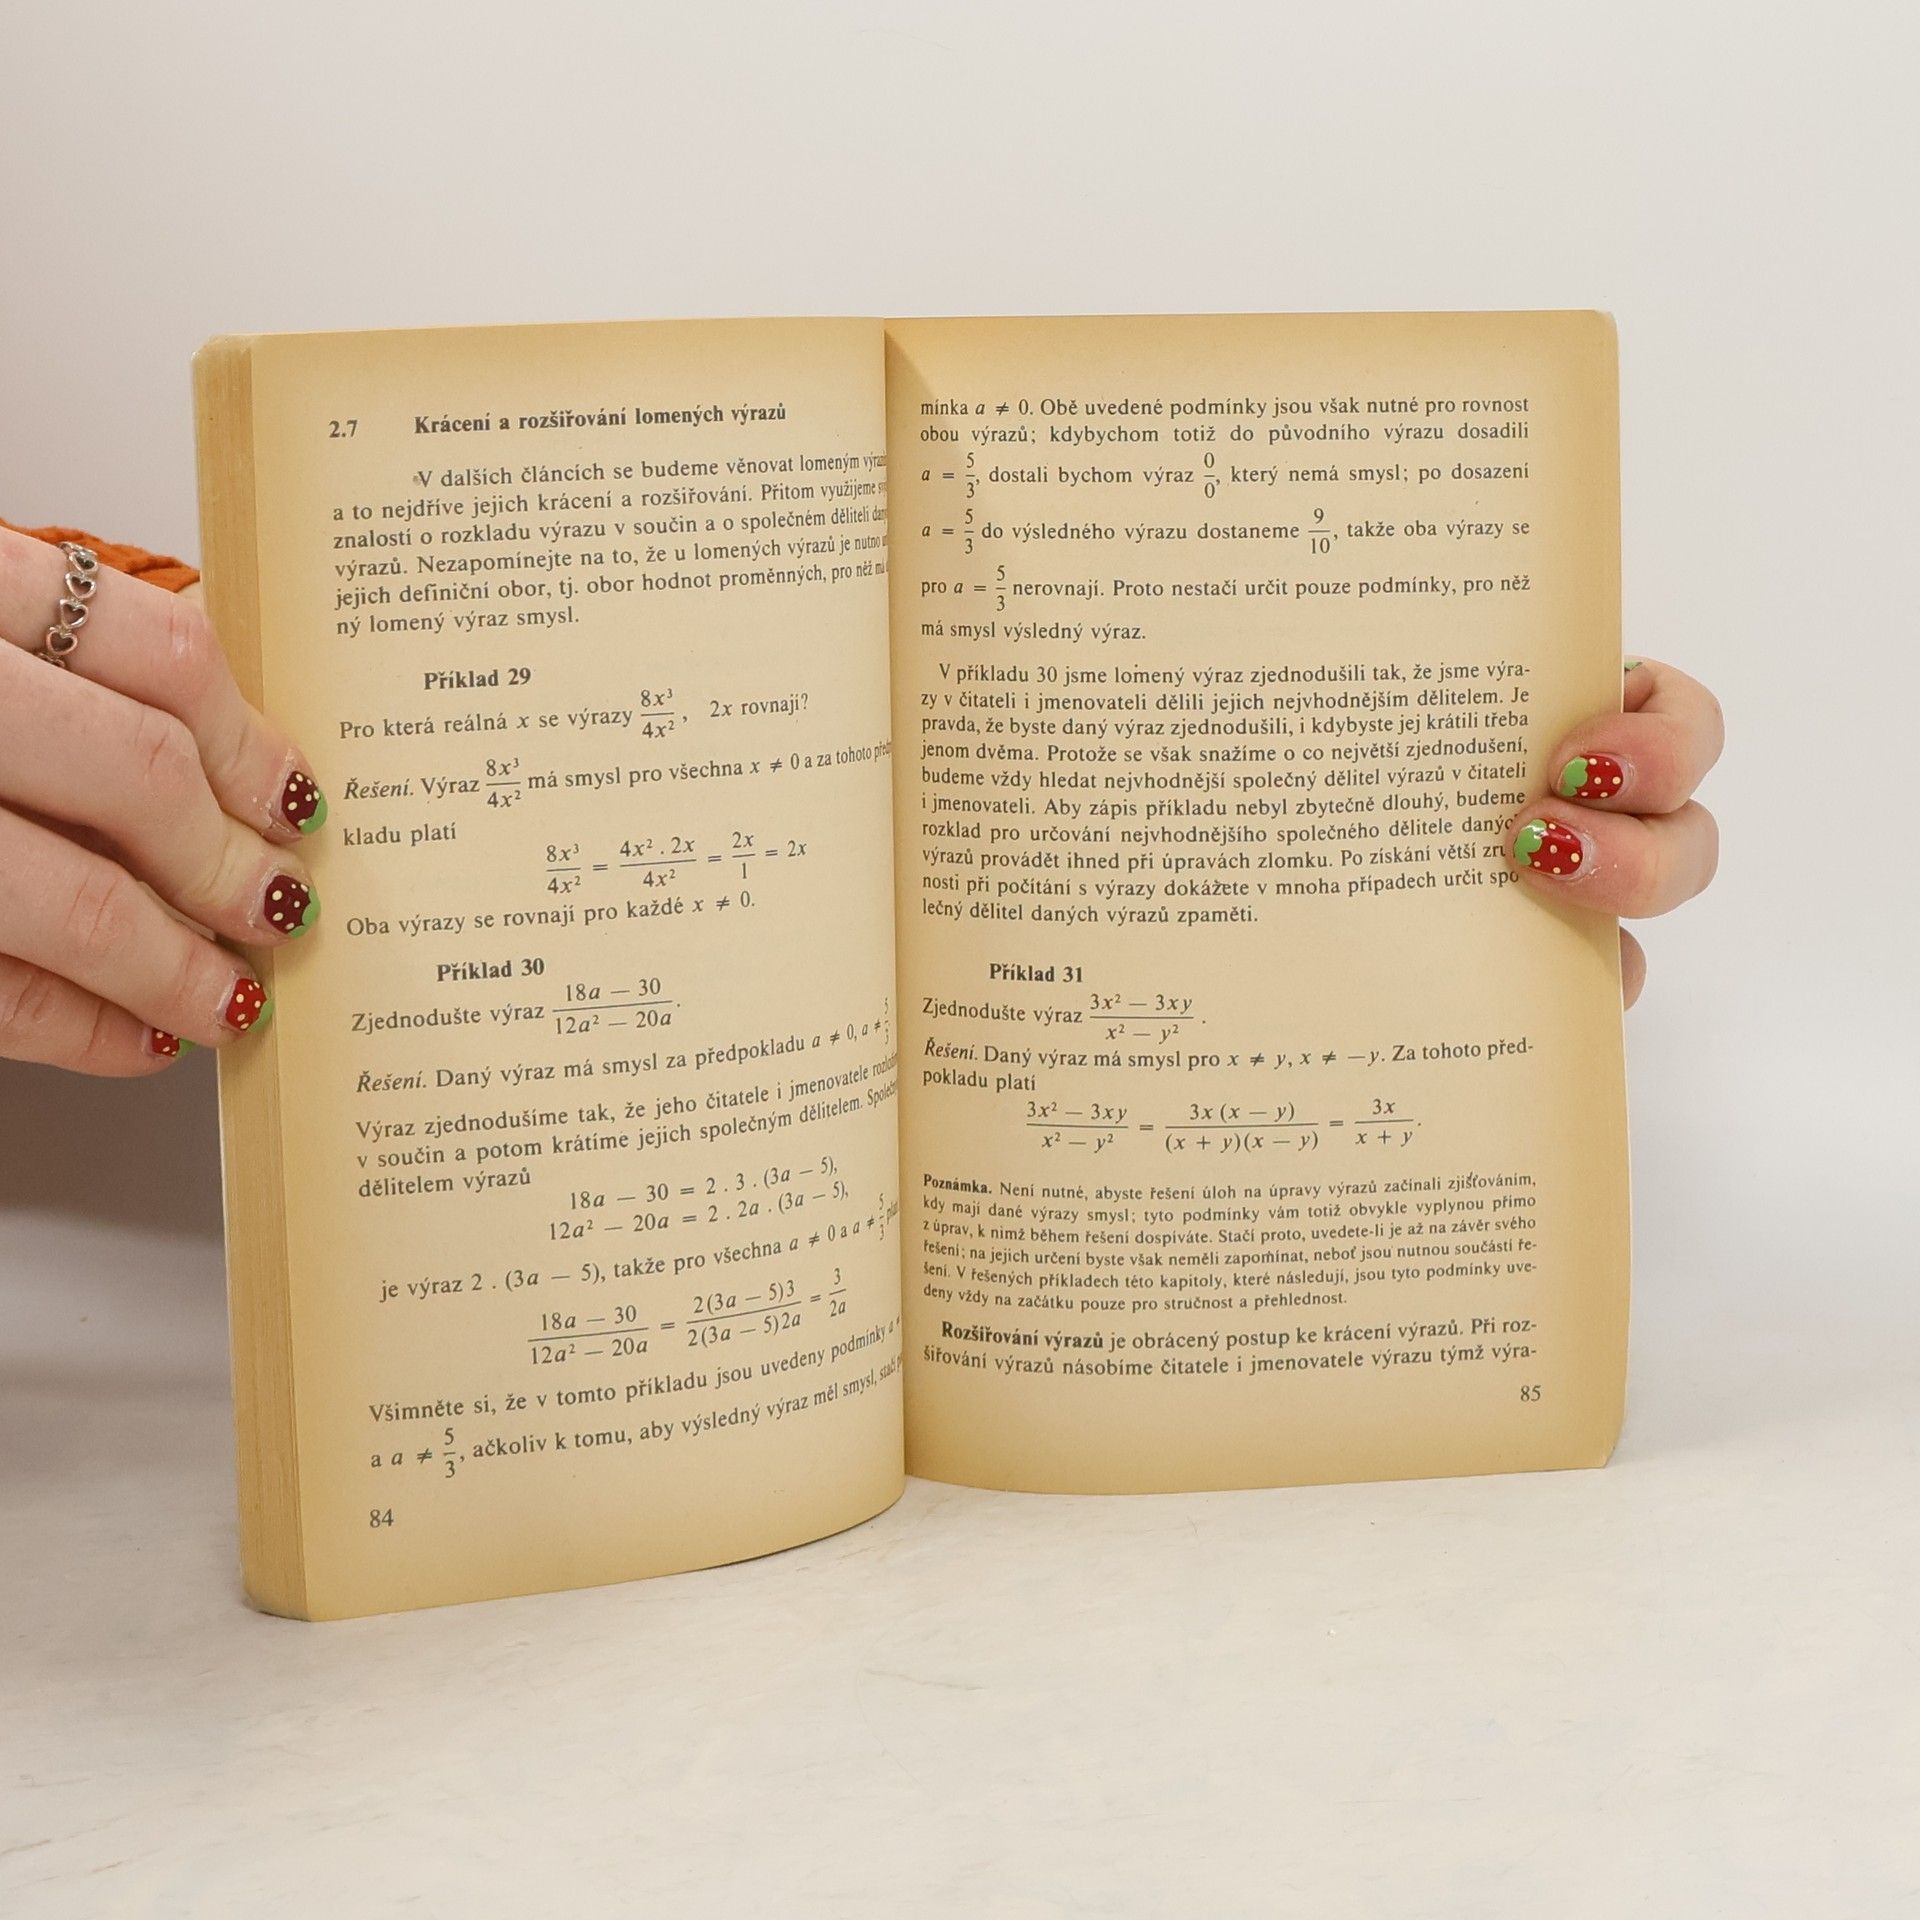 2.7 Krácení a rozšiřování lomených výrazů
V dalších článcích se budeme věnovat lomeným
a to nejdříve jejich krácení a rozšiřování. Přitom využijeme
znalostí o rozkladu výrazu v součin a o společném děliteli
výrazů. Nezapomínejte na to, že u lomených výrazů je nutno
jejich definiční obor, tj. obor hodnot proměnných, pro něž
ný lomený výraz smysl.
Příklad 29
Pro která reálná x se výrazy 8x³/4x², 2x rovnají?
Řešení. Výraz 8x³/4x² má smysl pro všechna x ≠ 0 a za tohoto
kladu platí
8x³/4x² = 4x² . 2x/4x² = 2x/1 = 2x
Oba výrazy se rovnají pro každé x ≠ 0.
Příklad 30
Zjednodušte výraz (18a — 30)/(12a² — 20a).
Řešení. Daný výraz má smysl za předpokladu a ≠ 0, a ≠ 5/3
Výraz zjednodušíme tak, že jeho čitatele i jmenovatele
v součin a potom krátíme jejich společným dělitelem.
dělitelem výrazů
18a — 30 = 2 . 3 . (3a — 5),
12a² — 20a = 2 . 2a . (3a — 5),
je výraz 2 . (3a — 5), takže pro všechna a ≠ 0 a a ≠ 5/3
(18a — 30)/(12a² — 20a) = 2(3a — 5)3/2(3a — 5)2a = 3/2a
Všimněte si, že v tomto příkladu jsou uvedeny podmínky a
a a ≠ 5/3, ačkoliv k tomu, aby výsledný výraz měl smysl,
84
mínka a ≠ 0. Obě uvedené podmínky jsou však nutné pro rovnost
obou výrazů; kdybychom totiž do původního výrazu dosadili
a = 5/3, dostali bychom výraz 0/0, který nemá smysl; po dosazení
a = 5/3 do výsledného výrazu dostaneme 9/10, takže oba výrazy se
pro a = 5/3 nerovnají. Proto nestačí určit pouze podmínky, pro něž
má smysl výsledný výraz.
V příkladu 30 jsme lomený výraz zjednodušili tak, že jsme výra-
zy v čitateli i jmenovateli dělili jejich nejvhodnějším dělitelem. Je
pravda, že byste daný výraz zjednodušili, i kdybyste jej krátili třeba
jenom dvěma. Protože se však snažíme o co největší zjednodušení,
budeme vždy hledat nejvhodnější společný dělitel výrazů v čitateli
i jmenovateli. Aby zápis příkladu nebyl zbytečně dlouhý, budeme
rozklad pro určování nejvhodnějšího společného dělitele
výrazů provádět ihned při úpravách zlomku. Po získání větší
nosti při počítání s výrazy dokážete v mnoha případech určit spo-
lečný dělitel daných výrazů zpaměti.
Příklad 31
Zjednodušte výraz (3x² — 3xy)/(x² — y²).
Řešení. Daný výraz má smysl pro x ≠ y, x ≠ —y. Za tohoto před-
pokladu platí
(3x² — 3xy)/(x² — y²) = 3x (x — y)/(x + y)(x — y) = 3x/(x + y).
Poznámka. Není nutné, abyste řešení úloh na úpravy výrazů začínali zjišťováním,
kdy mají dané výrazy smysl; tyto podmínky vám totiž obvykle vyplynou přímo
z úprav, k nimž během řešení dospíváte. Stačí proto, uvedete-li je až na závěr svého
řešení; na jejich určení byste však neměli zapomínat, neboť jsou nutnou součástí ře-
šení. V řešených příkladech této kapitoly, které následují, jsou tyto podmínky uve-
deny vždy na začátku pouze pro stručnost a přehlednost.
Rozšiřování výrazů je obrácený postup ke krácení výrazů. Při roz-
šiřování výrazů násobíme čitatele i jmenovatele výrazu týmž výra-
85